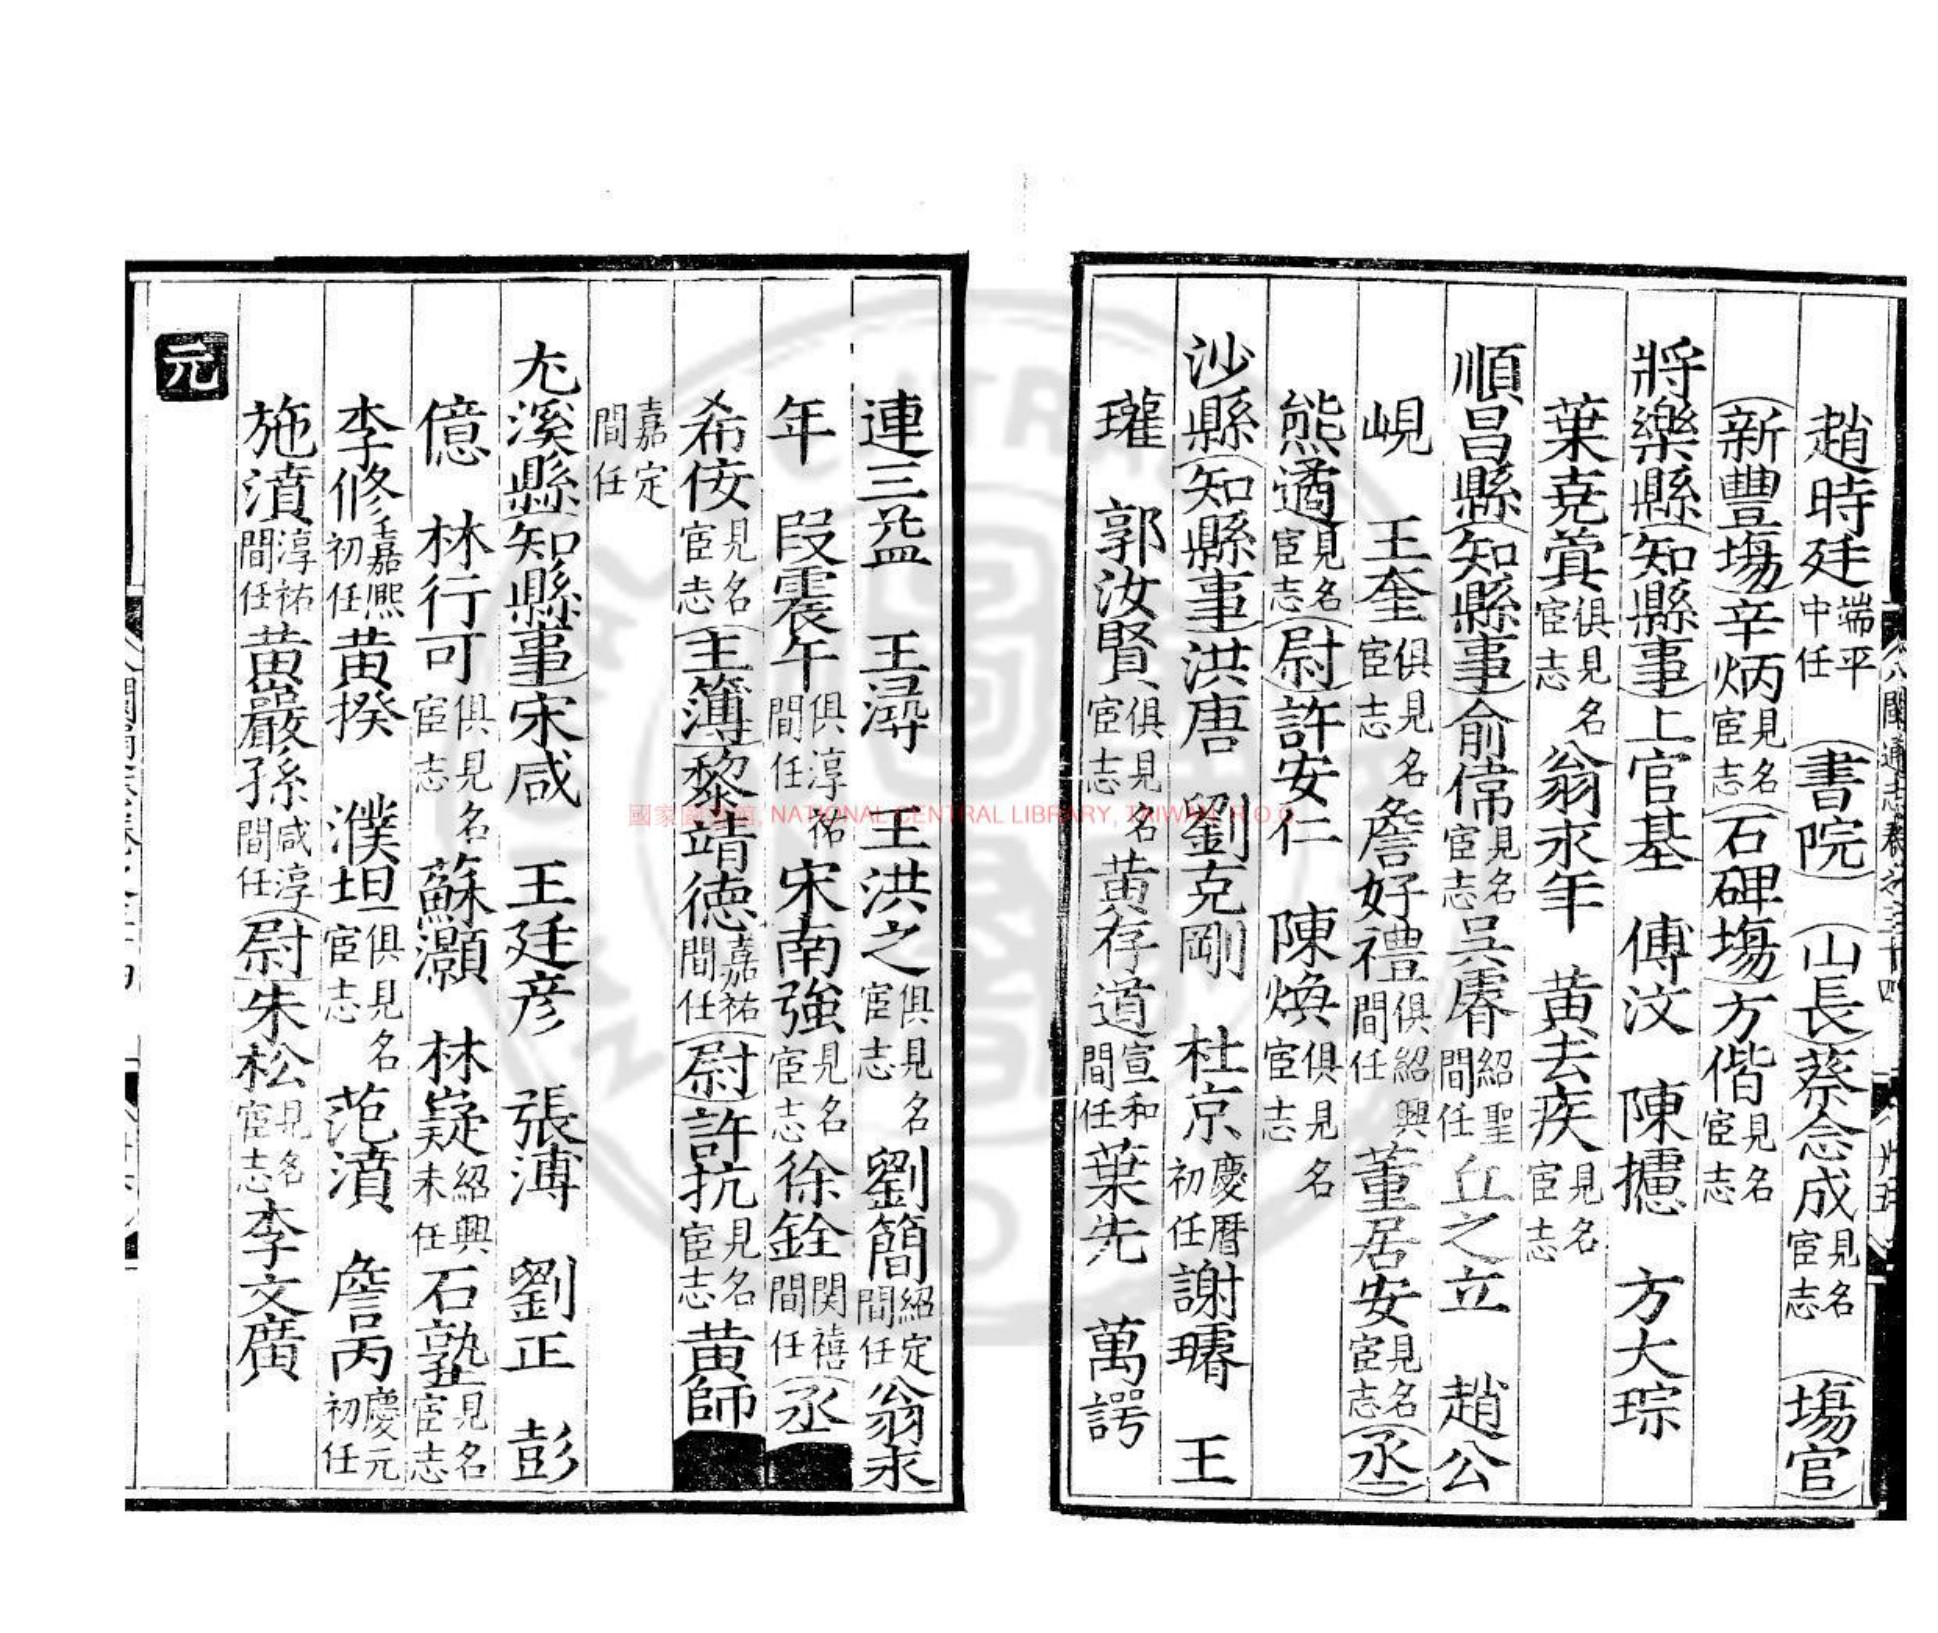 趙時廷端平中任　（書院）　（山長）蔡念成見名宦志　（塲官）
（新豐塲）辛炳見名宦志（石碑塲）方偕見名宦志
將樂縣（知縣事）上官基　傅汶　陳摅　方大琮
葉堯蓂俱見名宦志　翁永年　黃去疾見名宦志
順昌縣（知縣事）俞偉見名宦志吳㬙紹聖間任丘之立　趙公
峴　王奎俱見名宦志詹好禮俱紹興間任董居安見名宦志（丞）
熊遹見名宦志（尉）許安仁　陳煥俱見名宦志
沙縣（知縣事）洪唐　劉克剛　杜京慶曆初任謝璿　王
瓘　郭汝賢俱見名宦志黃存道宣和間任葉先　萬諤
連三益　王潯　王洪之俱見名宦志　劉簡紹定間任翁永
年　段震午俱淳祐間任　宋南強見名宦志徐銓開禧間任（丞）
希佞見名宦志（主簿）黎靖德嘉祐間任（尉）許抗見名宦志黃師
嘉定間任
尤溪縣（知縣事）宋咸　王廷彥　張漙　劉正　彭
億　林行可俱見名宦志　蘇灝　林嶷紹興末任石𡐨見名宦志
李修嘉熙初任黃揆　濮坦俱見名宦志　范濆　詹丙慶元初任
施濆淳祐間任黃巖孫咸淳間任（尉）朱松見名宦志李文廣
元
八閩通志卷之三十四
國家圖書館, NATIONAL CENTRAL LIBRARY, TAIWAN, R.O.C.